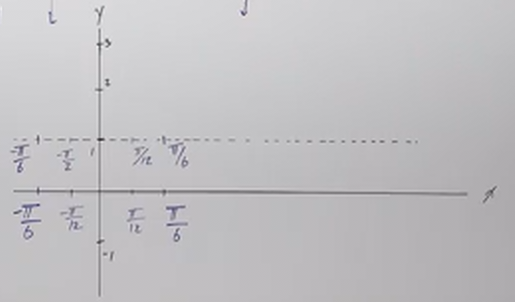 y
3
2
-π/6 -π/2 1 π/12 π/6
x
-π/6 -π/12 π/12 π/6
-1